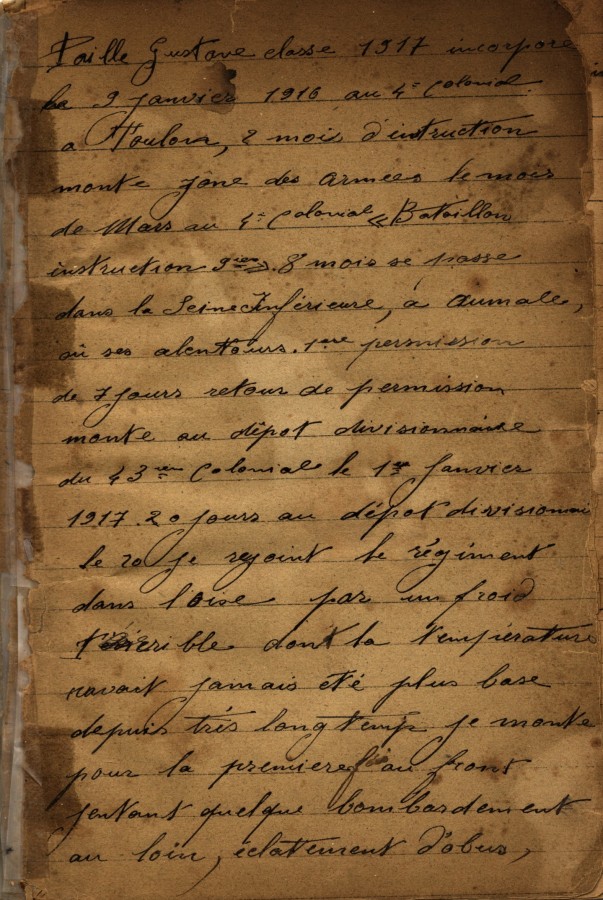 Paille Gustave classe 1917 incorpore
le 9 janvier 1916 au 4e Colonial
a Toulon, 2 mois d'instruction
monte zone des armees le mois
de Mars au 4e Colonial « Bataillon
instruction 9ieme ». 8 mois se passe
dans la Seine Inférieure, à Aumale,
où ses alentours. 1ere permission
de 7 jours retour de permission
monte au dépot divisionnaire
du 43ieme Colonial le 1er Janvier
1917. 20 jours au dépot divisionnai
le 20 je rejoint le régiment
dans l'oise par un froid
terrible dont la température
navait jamais été plus base
depuis très longtemp je monte
pour la premiere fis au front
jentant quelque bombardement
au loin, éclatement d'obus,